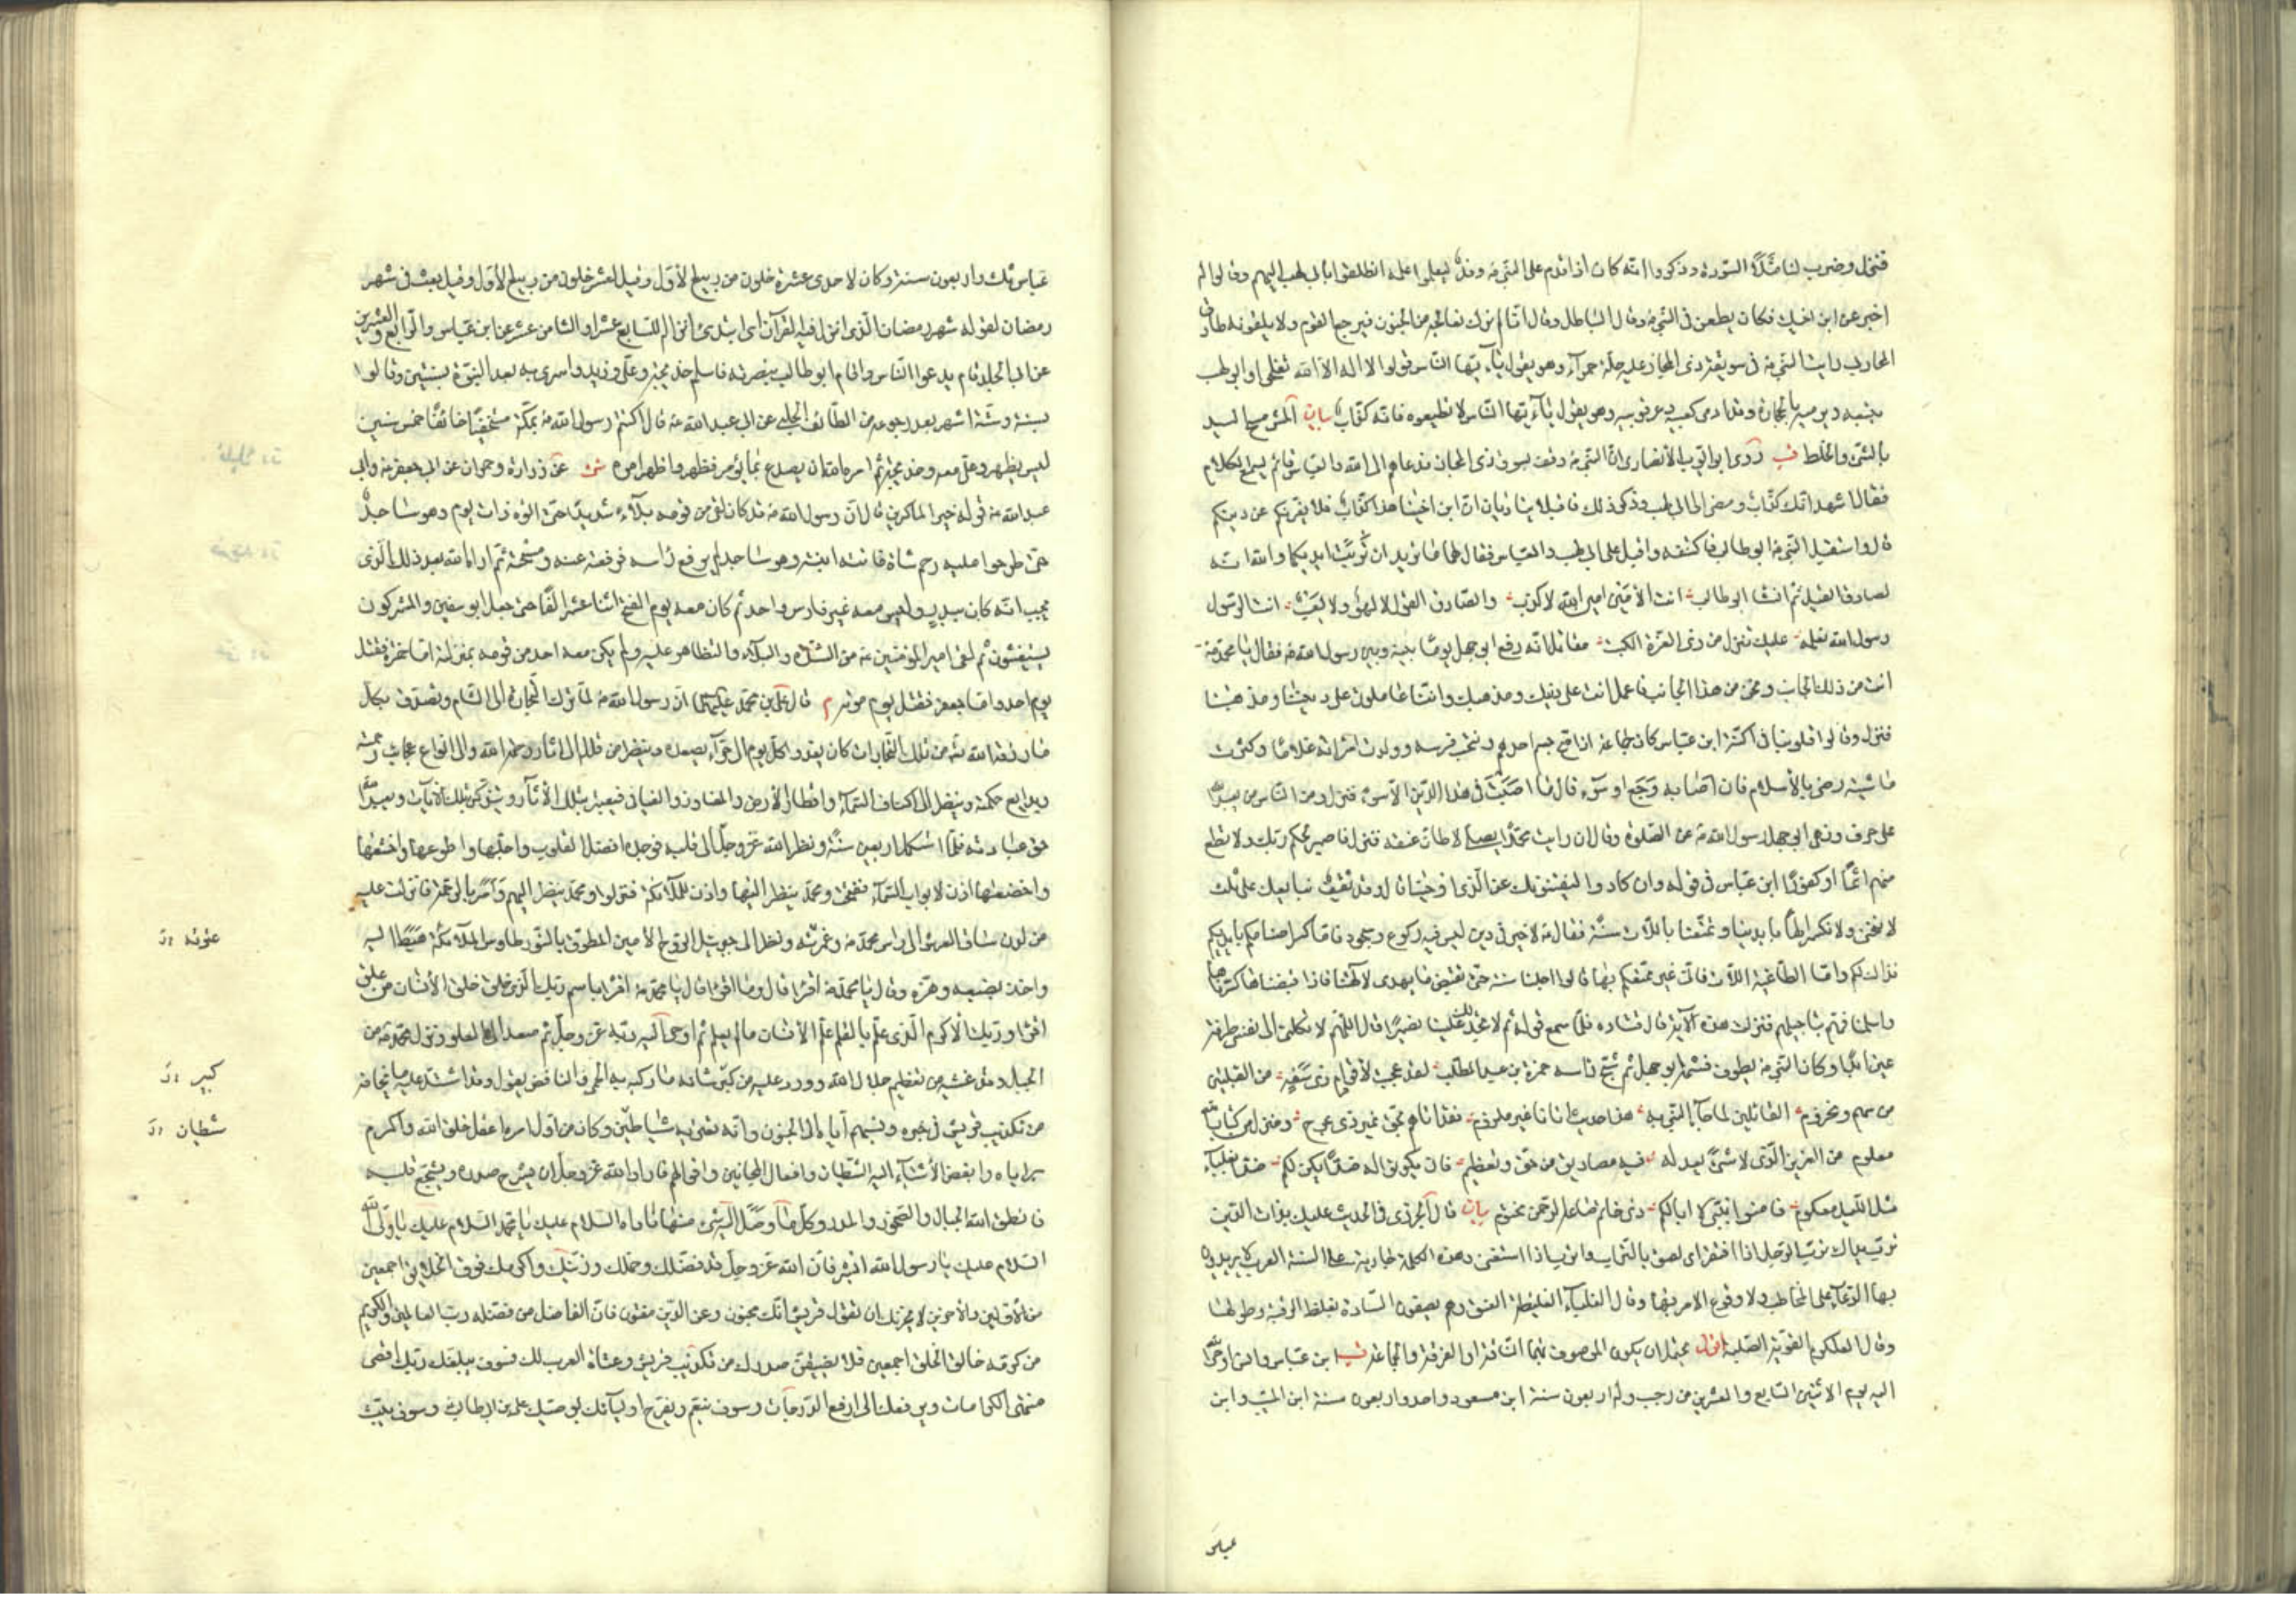 فنزل وضرب لنا مثلا السورة وذكروا انه كان اذا قدم على النبي وفد ليعلموا علمه انطلقوا بابي لهب اليهم وقالوا له
اخبر عن ابن اخيك فكان يطعن في النبي وقال الباطل وقال انا لم نزل نعالجه من الجنون فيرجع القوم ولا يلقونه طارق
المحاربي رايت النبي في سويقة ذي المجاز عليه حلة حمراء وهو يقول يا ايها الناس قولوا لا اله الا الله تفلحوا وابو لهب
يتبعه ويرميه بالحجارة وقد ادمى كعبيه وعرقوبيه وهو يقول يا ايها الناس لا تطيعوه فانه كذاب بيان المش مسح اليد
بالشئ والخلط قب روى ابو ايوب الانصاري ان النبي وقف بسوق ذي المجاز فدعاهم الى الله والعباس قائم يسمع الكلام
فقال اشهد انك كذاب ومضى الى ابي لهب وذكر ذلك فاقبلا يناديان ان ابن اخينا هذا كذاب فلا يغرنكم عن دينكم
قال واستقبل النبي ابو طالب فاكتنفه واقبل على ابي لهب والعباس فقال لهما ما تريدان تربت ايديكما والله انه
لصادق القيل ثم انشا ابو طالب انت الامين امين الله لا كذب والصادق القول لا لهو ولا لعب انت الرسول
رسول الله نعلمه عليك تنزل من ذي العزة الكتب مقاتل انه رفع ابو جهل يوما بينه وبين رسول الله فقال يا محمد
انت من ذلك الجانب ونحن من هذا الجانب فاعمل انت على دينك ومذهبك واننا عاملون على ديننا ومذهبنا
فنزل وقالوا قلوبنا في اكنة ابن عباس كان جماعة اذا صح جسم احدهم ونتجت فرسه وولدت امراته غلاما وكثرت
ماشيته رضي بالاسلام فان اصابه وجع او سوء قال ما اصبت في هذا الدين الا سوء فنزل ومن الناس من يعبد الله
على حرف ونهى ابو جهل رسول الله عن الصلوة وقال ان رايت محمدا يصلي لاطأن عنقه فنزل فاصبر لحكم ربك ولا تطع
منهم اثما او كفورا ابن عباس في قوله وان كادوا ليفتنونك عن الذي اوحينا قال وفد ثقيف نبايعك على ثلث
لا ننحني ولا نكسر الها بايدينا وتمتعنا باللات سنة فقال لا خير في دين ليس فيه ركوع وسجود فاما كسر اصنامكم بايديكم
فذاك لكم واما الطاغية اللات فاني غير ممتعكم بها قالوا اجلنا سنة حتى نقبض ما يهدى لآلهتنا فاذا قبضناها كسرناها
واسلمنا فهم بتاجيلهم فنزلت هذه الآية قال قتادة فلما سمع قوله ثم لا تجد لك علينا نصيرا قال اللهم لا تكلني الى نفسي طرفة
عين ابدا وكان النبي يطوف فشتمه ابو جهل ثم شج راسه حمزة بن عبد المطلب لقد عجبت لاقوام ذوي سفه من القبيلين
من سهم ومخزوم القائلين لما جاء النبي به هذا حديث اتانا غير ملزوم فقد اتاهم بحق غير ذي عوج ومنزل من كتاب الله
معلوم من العزيز الذي لا شئ يعدله فيه مصاديق من حق وتعظيم فان يكونوا له ضدا يكن لكم ضدا بغلباء
مثل الليل علكوم فآمنوا بنبي لا ابا لكم ذي خاتم صاغه الرحمن مختوم بيان قال الجزري في الحديث عليك بذات الدين
تربت يداك ترب الرجل اذا افتقر اى لصق بالتراب واترب اذا استغنى وهذه الكلمة جارية على السنة العرب لا يريدون
بها الدعاء على المخاطب ولا وقوع الامر بها وقال الغلباء الغليظة العنق وهم يصفون السادة بغلظ الرقبة وطولها
وقال العلكوم القوية الصلبة اقول يحتمل ان يكون الموصوف بهما الناقة او الفرقة والجماعة قب ابن عباس وانس اوحى الله
اليه يوم الاثنين السابع والعشرين من رجب وله اربعون سنة ابن مسعود واحد واربعون سنة ابن المسيب وابن
عباس ثلث واربعون سنة وكان لاحدى عشرة خلون من ربيع الاول وقيل لعشر خلون من ربيع الاول وقيل بعث في شهر
رمضان لقوله شهر رمضان الذي انزل فيه القرآن اى ابتدئ انزاله للسابع عشر او الثامن عشر عن ابن عباس والرابع والعشرين
عن ابي الجلد فقام يدعوا الناس واقام ابو طالب بنصرته فاسلم خديجة وعلي وزيد واسري به بعد النبوة بسنتين وقالوا
بسنة وستة اشهر بعد رجوعه من الطائف الحلبي عن ابي عبد الله قال اكتتم رسول الله بمكة مستخفيا خائفا خمس سنين
ليس يظهر وعلي معه وخديجة ثم امره الله ان يصدع بما يؤمر فظهر واظهر امره شى عن زرارة وحمران عن ابي جعفر وابي
عبد الله في قوله خير الماكرين قال ان رسول الله قد كان لقي من قومه بلاء شديدا حتى اتوه ذات يوم وهو ساجد
حتى طرحوا عليه رحم شاة فاتته ابنته وهو ساجد لم يرفع راسه فرفعته عنه ومسحته ثم اراه الله بعد ذلك الذي
يحب انه كان ببدر وليس معه غير فارس واحد ثم كان معه يوم الفتح اثنا عشر الفا حتى جعل ابو سفين والمشركون
يستغيثون ثم لقي امير المؤمنين من الشدة والبلاء والتظاهر عليه ولم يكن معه احد من قومه بمنزلته اما حمزة فقتل
يوم احد واما جعفر فقتل يوم موته م قال علي بن محمد ان رسول الله لما ترك التجارة الى الشام وتصدق بكل
ما رزقه الله من تلك التجارات كان يغدوا كل يوم الى حراء يصعده وينظر من قلله الى آثار رحمة الله والى انواع عجائب رحمته
وبدايع حكمته وينظر الى اكناف السماء واقطار الارض والمفاوز والفيافي فيعتبر بتلك الآثار ويتذكر بتلك الآيات ويعبد الله
حق عبادته فلما استكمل اربعين سنة ونظر الله عز وجل الى قلبه فوجده افضل القلوب واجلها واطوعها واخشعها
واخضعها اذن لابواب السماء ففتحت ومحمد ينظر اليها واذن للملائكة فنزلوا ومحمد ينظر اليهم وامر بالرحمة فانزلت عليه
من لدن ساق العرش الى راس محمد وغرته ونظر الى جبرئيل الروح الامين المطوق بالنور طاوس الملائكة هبط اليه
واخذ بضبعه وهزه وقال يا محمد اقرا قال وما اقرا قال يا محمد اقرا باسم ربك الذي خلق خلق الانسان من علق
اقرا وربك الاكرم الذي علم بالقلم علم الانسان ما لم يعلم ثم اوحى اليه ربه عز وجل ثم صعد الى العلو ونزل محمد من
الجبل وقد غشيه من تعظيم جلال الله وورد عليه من كبير شانه ما ركبه به الحمى والنافض يقول وقد اشتد عليه ما يخافه
من تكذيب قريش في خبره ونسبتهم اياه الى الجنون وانه يعتريه شياطين وكان من اول امره اعقل خلق الله واكرم
براياه وابغض الاشياء اليه الشيطان وافعال المجانين واقوالهم فاراد الله عز وجل ان يشرح صدره ويشجع قلبه
فانطق الله الجبال والصخور والمدر وكلما وصل الى شئ منها ناداه السلام عليك يا محمد السلام عليك يا ولي الله
السلام عليك يا رسول الله ابشر فان الله عز وجل قد فضلك وجملك وزينك واكرمك فوق الخلايق اجمعين
من الاولين والآخرين لا يحزنك ان تقول قريش انك مجنون وعن الدين مفتون فان الفاضل من فضله رب العالمين والكريم
من كرمه خالق الخلق اجمعين فلا يضيقن صدرك من تكذيب قريش وعتاة العرب لك فسوف يبلغك ربك اقصى
منتهى الكرامات ويرفعك الى ارفع الدرجات وسوف ينعم ويفرح اولياءك بوصيك علي بن ابي طالب وسوف يبث
عباس
كبير
شيطان